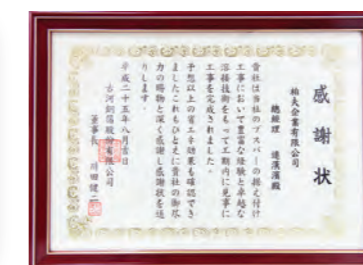 感謝状
柏夫企業有限公司
總經理 連濱濱殿
貴社は当社のブスバーの据え付け
工事において豊富な経験と卓越な
溶接技術をもって工期内に見事に
工事を完成されました。
予想以上の省エネ効果も確認でき
ましたこれもひとえに貴社の御尽
力の賜物と深く感謝し感謝状を送
りします。
平成二十五年八月吉日
古河銅箔股份有限公司
董事長 川田健二